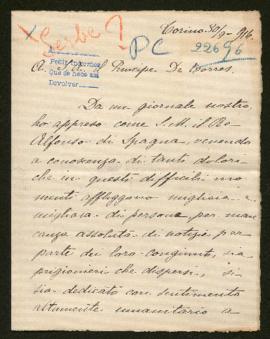 Torino 30/9-916
Serbe ?
PC
22696
Pedir informes
Que se hace así
Devolver
A. S. E. il Principe De Borros.
Da un giornale nostro
ho appreso come S. M. il Re
Alfonso di Spagna, venendo
a conoscenza di tanto dolore
che in questi difficili mo-
menti affliggono migliaia e
migliaia di persone per man-
canza assoluta di notizie per
parte dei loro congiunti, sia
prigionieri che dispersi, si
sia dedicato con sentimento
altamente umanitario a